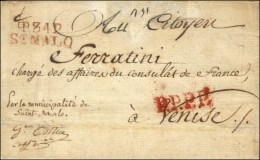 Au Citoyen
P.34.P.
ST MALO
Ferratini
chargé des affaires du consulat de France,
Par la municipalité de
Saint-Malo.
P.P.P.P.
à Venise